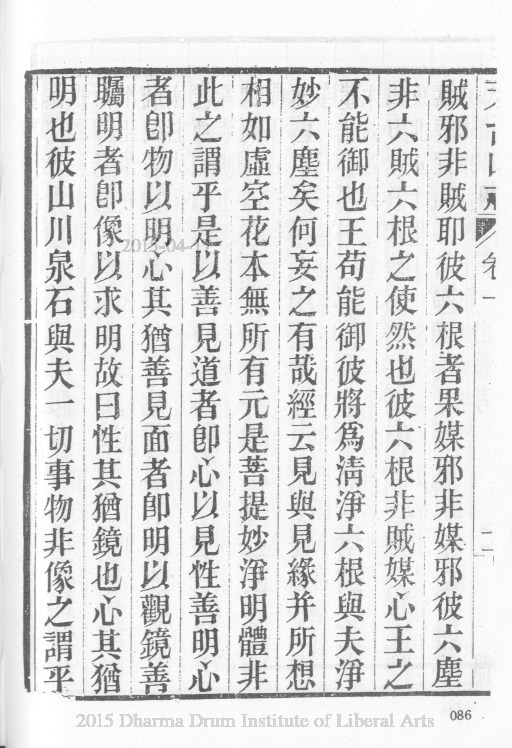 賊邪非賊耶彼六根者果媒邪非媒邪彼六塵
非六賊六根之使然也彼六根非賊媒心王之
不能御也王苟能御彼將為清淨六根與夫淨
妙六塵矣何妄之有哉經云見與見緣并所想
相如虛空花本無所有元是菩提妙淨明體非
此之謂乎是以善見道者卽心以見性善明心
者卽物以明心其猶善見面者卽明以觀鏡善
矚明者卽像以求明故曰性其猶鏡也心其猶
明也彼山川泉石與夫一切事物非像之謂乎
卷一
二
086
2015 Dharma Drum Institute of Liberal Arts